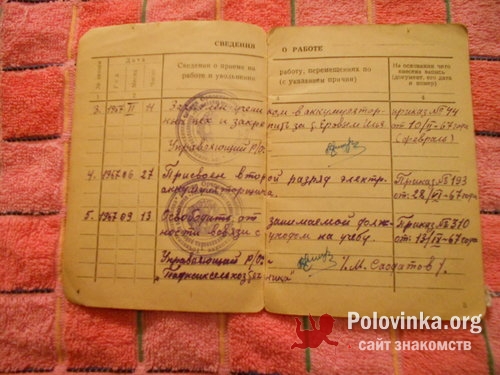 СВЕДЕНИЯ О РАБОТЕ
№ записи
Дата
Год
Месяц
Число
Сведения о приеме на работе и увольнении
работу, перемещениях по (с указанием причин)
На основании чего внесена запись (документ, его дата и номер)
4
3. 1967 II 11 учеником в аккумулятор- приказ №44
цех и закрепить за от 10/II-67 года
(февраль)
Управляющий Р/О
4. 1967 06 27 Присвоен второй разряд электр. Приказ №193
аккумуляторщика. от 28/VI-67 года
5. 1967 09 13 Освободить от занимаемой долж- Приказ №310
ности в связи с уходом на учебу. от 13/IX-67 года
Управляющий Р/О
/.М. Саодатов/.
3
Polovinka.org
сайт знакомств